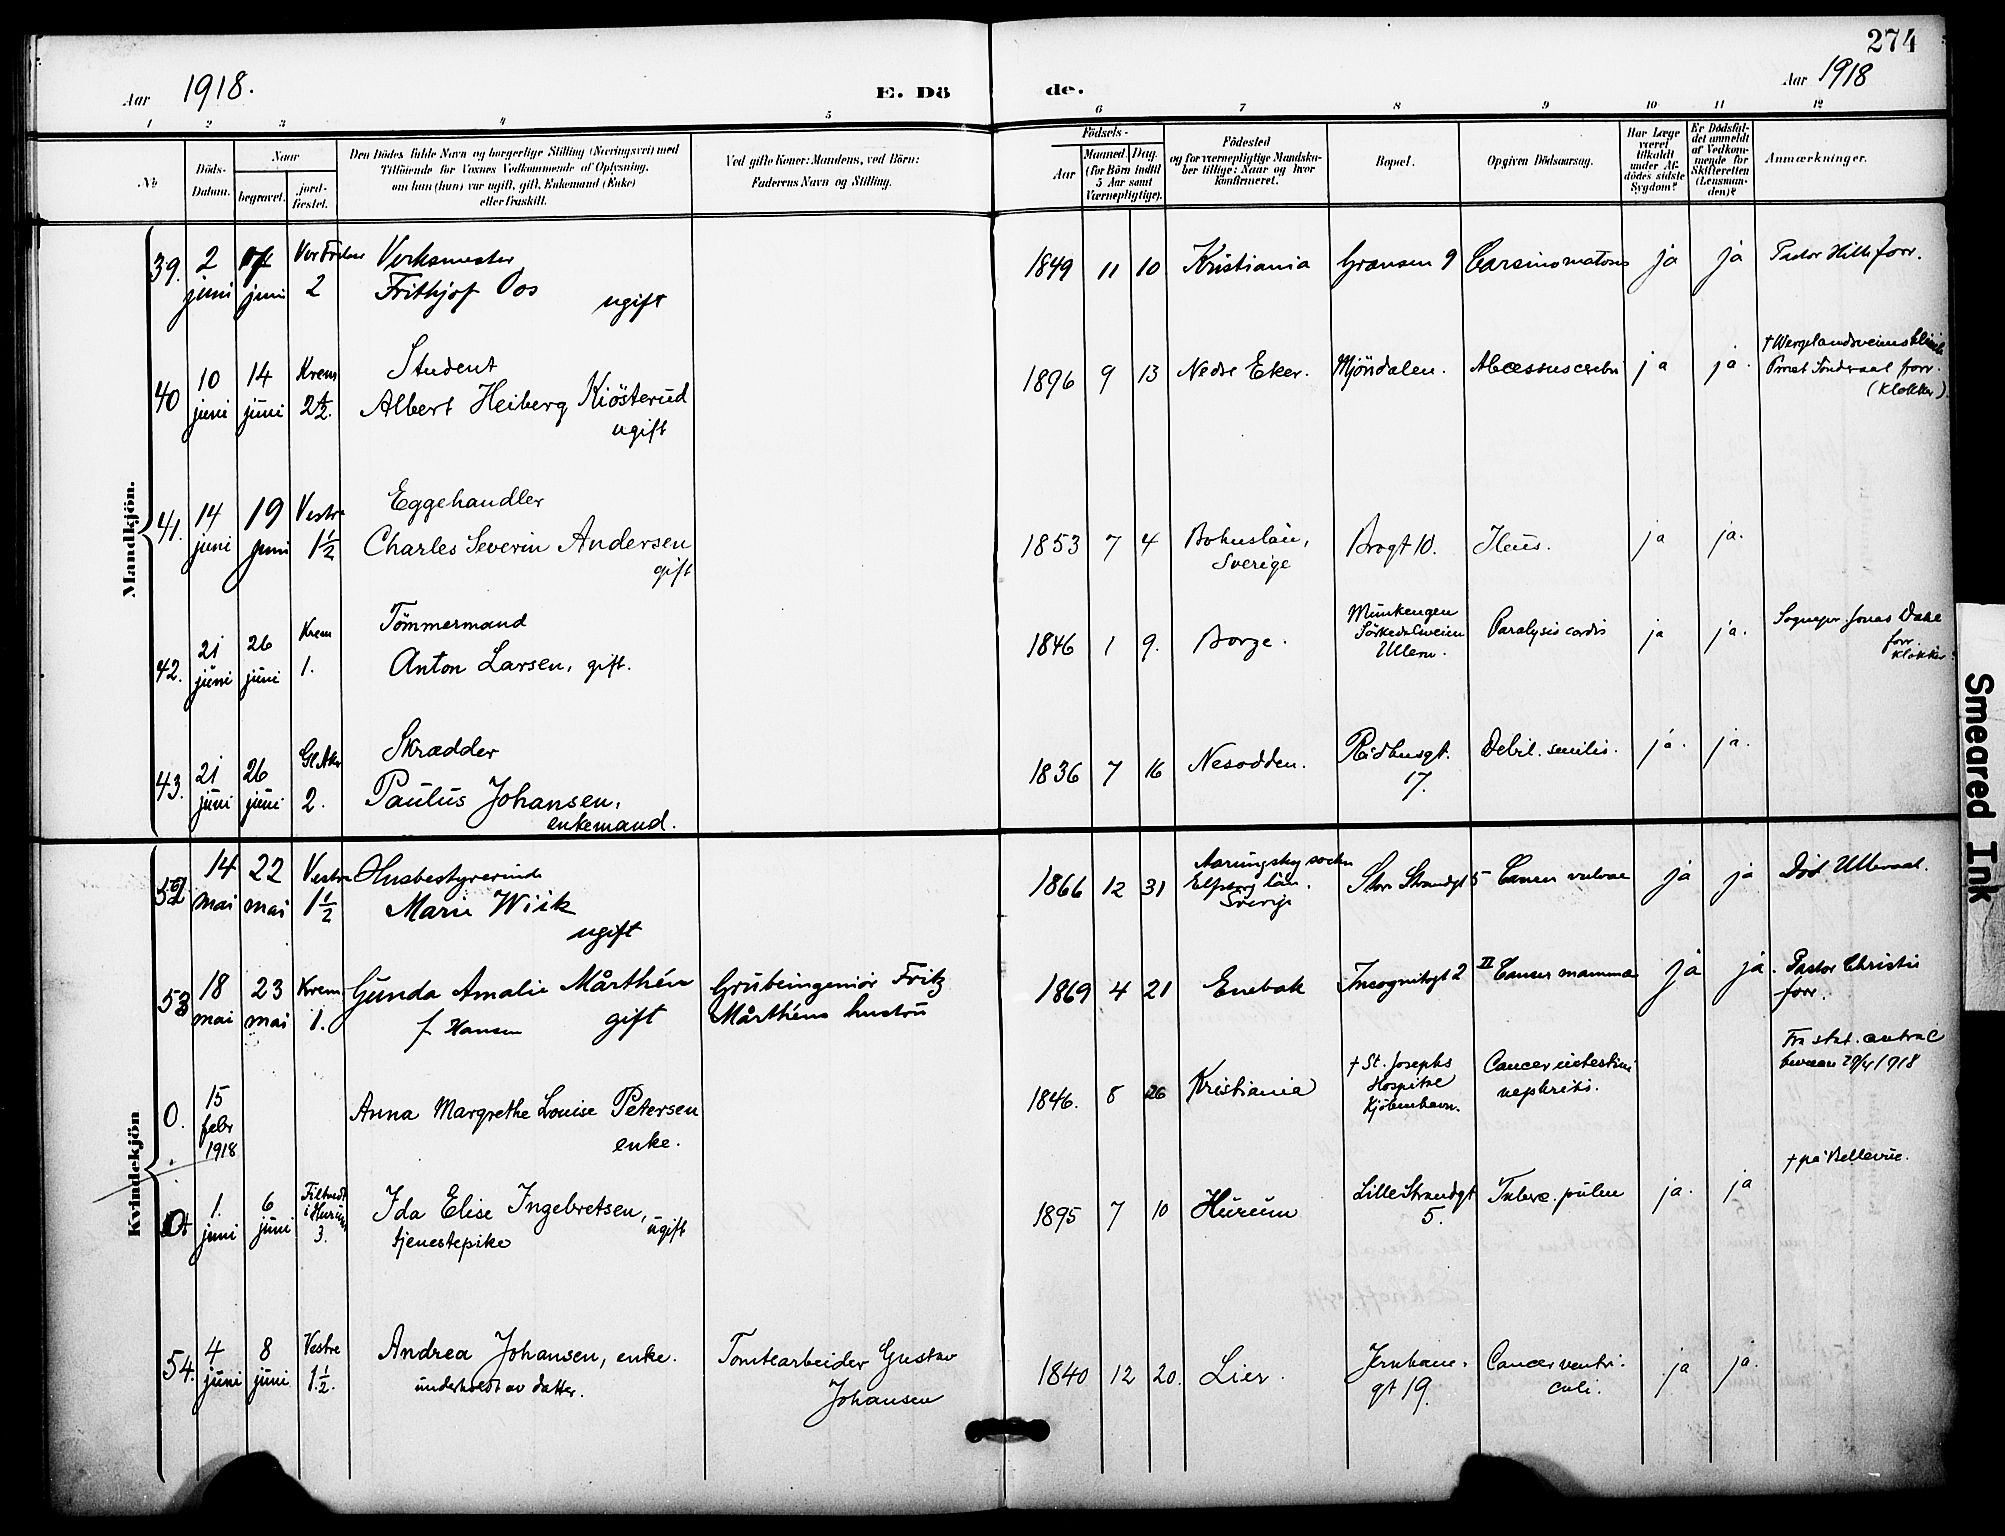 274
Aar 1918.
E. Dö de.
Aar 1918
1 2 3 4 5 6 7 8 9 10 11 12
No
Döds-
Datum.
Naar
begravet. jord-
fæstet.
Den Dödes fulde Navn og borgerlige Stilling (Næringsvei) med
Tilföiende for Voxnes Vedkommende af Oplysning,
om han (hun) var ugift, gift, Enkemand (Enke)
eller fraskilt.
Ved gifte Koner: Mandens, ved Börn:
Faderens Navn og Stilling.
Födsels-
Aar
Maaned. Dag.
(for Börn indtil
5 Aar samt
Værnepligtige).
Födested
og for værnepligtige Mandska-
ber tillige: Naar og hvor
konfirmeret.
Bopæl.
Opgiven Dödsaarsag.
Har Læge
været
tilkaldt
under Af-
dödes sidste
Sygdom?
Er Dödsfal-
det anmeldt
af Vedkom-
mende for
Skifteretten
(Lensman-
den)?
Anmærkninger.
Mandkjön.
39. 2 juni juni 2
Verksmester
Frithjof Oos
ugift
1849 11 10 Kristiania Grænsen 9 ja ja Pastor Hille forr.
40 10 juni 14 juni Krem 2
Student
Albert Heiberg Kiösterud
ugift
1896 9 13 Nedre Eker. Mjöndalen. Abcessus cerebri ja ja.
† Wergelandsveiens klinik
forr.
(klokker).
41. 14 juni 19 juni Vestre 1½
Eggehandler
Charles Severin Andersen
gift
1853 7 4 Bohuslän,
Sverige
Brogt 10. Ileus. ja ja.
42. 21 juni 26 juni Krem 1.
Tömmermand
Anton Larsen, gift.
1846 1 9. Borge.
Munkengen
Sörkedalsveien
Ullern.
Paralysis cordis ja ja.
Sognepr. Jonas Dahl
forr.
klokker.
43. 21 juni 26 juni Gl Aker 2.
Skrædder
Paulus Johansen,
enkemand.
1836 7 16 Nesodden. Rådhusgt.
17.
Debil. senilis. ja. ja.
Kvindekjön
52 14 mai 22 mai Vestre 1½
Husbestyrerinde
Marie Wiik
ugift
1866 12 31
Sverige
Store Strandgt 5 Cancer vulvae ja ja Död Ullevaal.
53 18 mai 23 mai Krem. 1.
Gunda Amalie Mårthén
f. Hansen gift
Grubeingeniör Fritz
Mårthéns hustru
1869 4 21 Enebak Incognitogt 2 Cancer mamma ja ja. Pastor Christie
forr.
0. 15 febr 1918
Anna Margrethe Louise Petersen
enke.
1846. 8 26 Kristiania
† St. Josephs
Hospital
Kjöbenhavn.
Cancer intestini
nephritis.
Fra stat. central
bureau 1918
1. juni 6 juni Filtvedt
i Hurum
3.
Ida Elise Ingebretsen, ugift
tjenestepike
1895 7 10 Hurum Lille Strandgt
5.
Tuberc. pulm ja. ja
† på Bellevue.
54. 4 juni 8 juni Vestre 1½.
Andrea Johansen, enke.
underholdt av datter.
Tomtearbeider Gustav
Johansen
1840 12 20. Lier. Jernbane-
gt 19.
Cancer ventri-
culi.
ja ja.
Smeared Ink